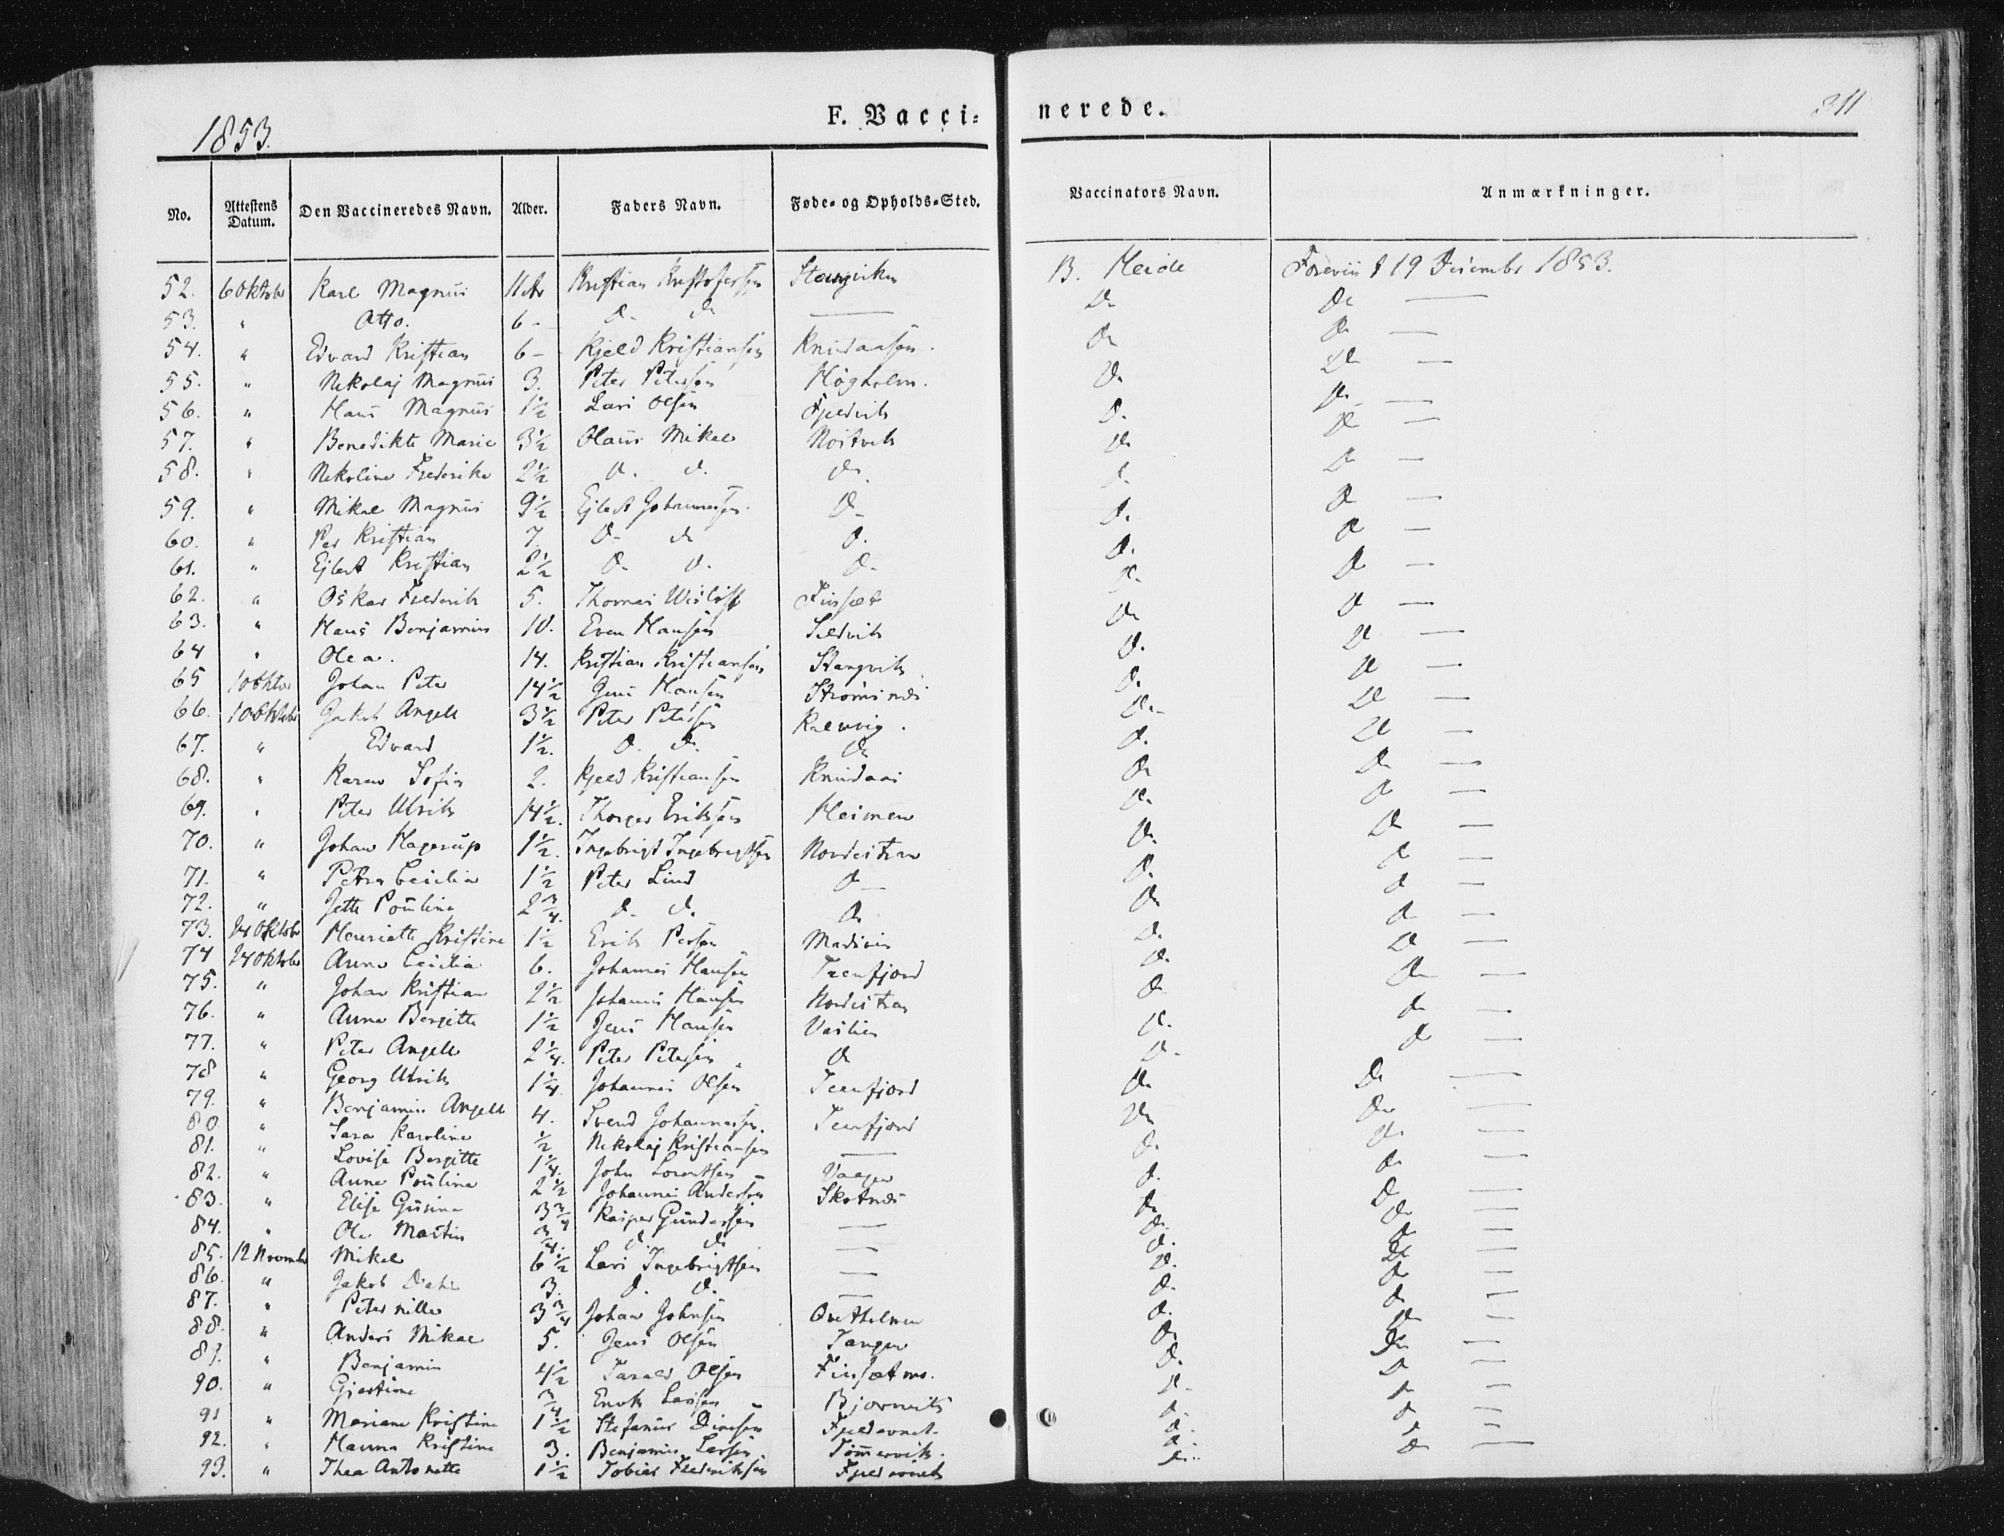 1853.
F. Vacci-
nerede.
211
No. Attestens Datum. Den Vaccineredes Navn. Alder. Faders Navn. Føde- og Opholds-Sted. Vaccinators Navn. Anmærkninger.
52. 6 Oktober Karl Magnus 11 Kristian Kristofersen Stangviken B. Heide 19 December 1853.
53. " Otto. 6 - D. D. — D. D. —
54. " Edvard Kristian 6 - Kjeld Kristiansen D. D. —
55. " Nikolaj Magnus 3. Peter Petersen Høgholm. D. D. —
56. " Hans Magnus 1½ Lars Olsen Fjeldvik D. D. —
57. " Benedikte Marie 3½ Olaus Mikal D. D. —
58. " Nikoline Frederike 2½ D. D. D. D. D. —
59. " Mikal Magnus 9½ Ejlert Johannesen D. D. D. —
60. " Per Kristian 7. D. D. D. D. D. —
61. " Ejlert Kristian 2½ D. D. D. D. D. —
62. " Oskar Frederik 5. Thomas Finset D. D. —
63. " Hans Benjamin 10. Even Hansen Seldvik D. D. —
64 " Olea. 14. Kristian Kristiansen Stangvik D. D. —
65 10 Oktbr Johan Peter 14½ Jens Hansen Strømsnes D. D. —
66. 10 Oktober Jakob Angell 3½ Peter Petersen Kalvvig. D. D. —
67. " Edvard 1½. D. D. D. D. D. —
68. " Karen Sofie 2. Kjeld Kristiansen D. D. —
69. " Peter Ulrik 14½. Thorger Eriksen Heimen D. D. —
70. " Johan Hagerup 1½. Ingebrigt Ingebrigtsen Nordistran D. D. —
71. " Petra Cecilia 1½ Peter Lind D. D. D. —
72. " Jette Pouline 2¾. D. D. D. D. D. —
73. 24 Oktober Henriette Kristine 1½ Erik Persen D. D. —
74 24 Oktober Anne Cecilia 6. Johannes Hansen D. D. —
75. " Johan Kristian 2½ Johannes Hansen Nordistran D. D. —
76. " Anne Bergitte 1½ Jens Hansen D. D. —
77. " Peter Angell 2¼. Peter Petersen D. D. D. —
78 " Georg Ulrik 1¼. Johannes Olsen Teenfjord D. D. —
79. " Benjamin Angell 4. Svend Johannesen. Teenfjord D. D. —
80 " Sara Karoline ½ Nikolaj Kristiansen — D. D. —
81. " Lovise Bergitte 1¼. John Lorentsen Vaagen D. D. —
82. " Anne Pouline 2½ Johannes Andersen Skotnes D. D. —
83. " Elise Gusine 3¾ Kasper Gundersen — D. D. —
84. " Ole Martin ¾. D. D. — D. D. —
85. 12 November Mikal 6½ Lars Ingebrigtsen — D. D. —
86. " Jakob Dahl 3. D. D. — D. D. —
87. " Peternille 3¾ Johan Johnsen D. D. —
88. " Anders Mikal 5. Jens Olsen Tangen D. D. —
89. " Benjamin 4½ Tarald Olsen D. D. —
90. " Gjertine ¾ Enok Larsen Bjørnvik D. D. —
91 " Mariane Kristine 1½ Stefanus Dinesen Fjeldovnet D. D. —
92. " Hanna Kristine 3. Benjamin Larsen Tømmervik. D. D. —
93. " Thea Antonette 1½ Tobias Fredriksen D.